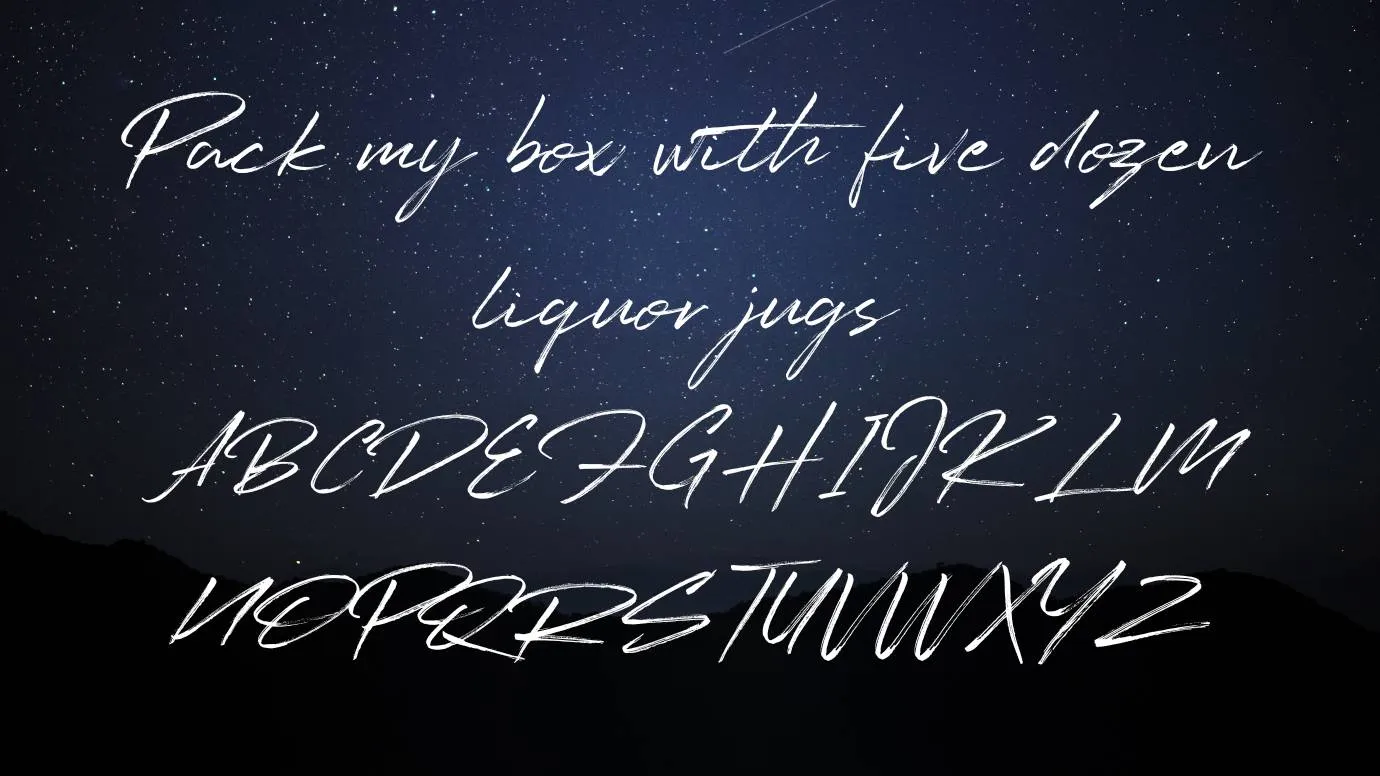 Pack my box with five dozen
liquor jugs
ABCDEFGHIJKLM
NOPQRSTUVWXYZ